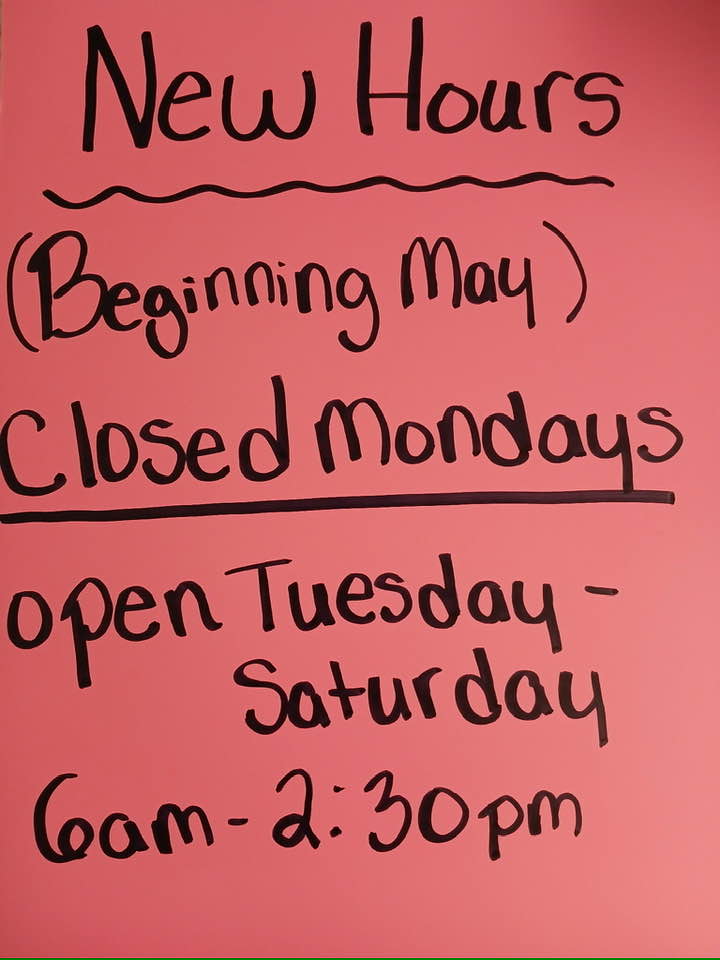 New Hours
(Beginning May)
Closed Mondays
open Tuesday -
Saturday
6am - 2:30pm